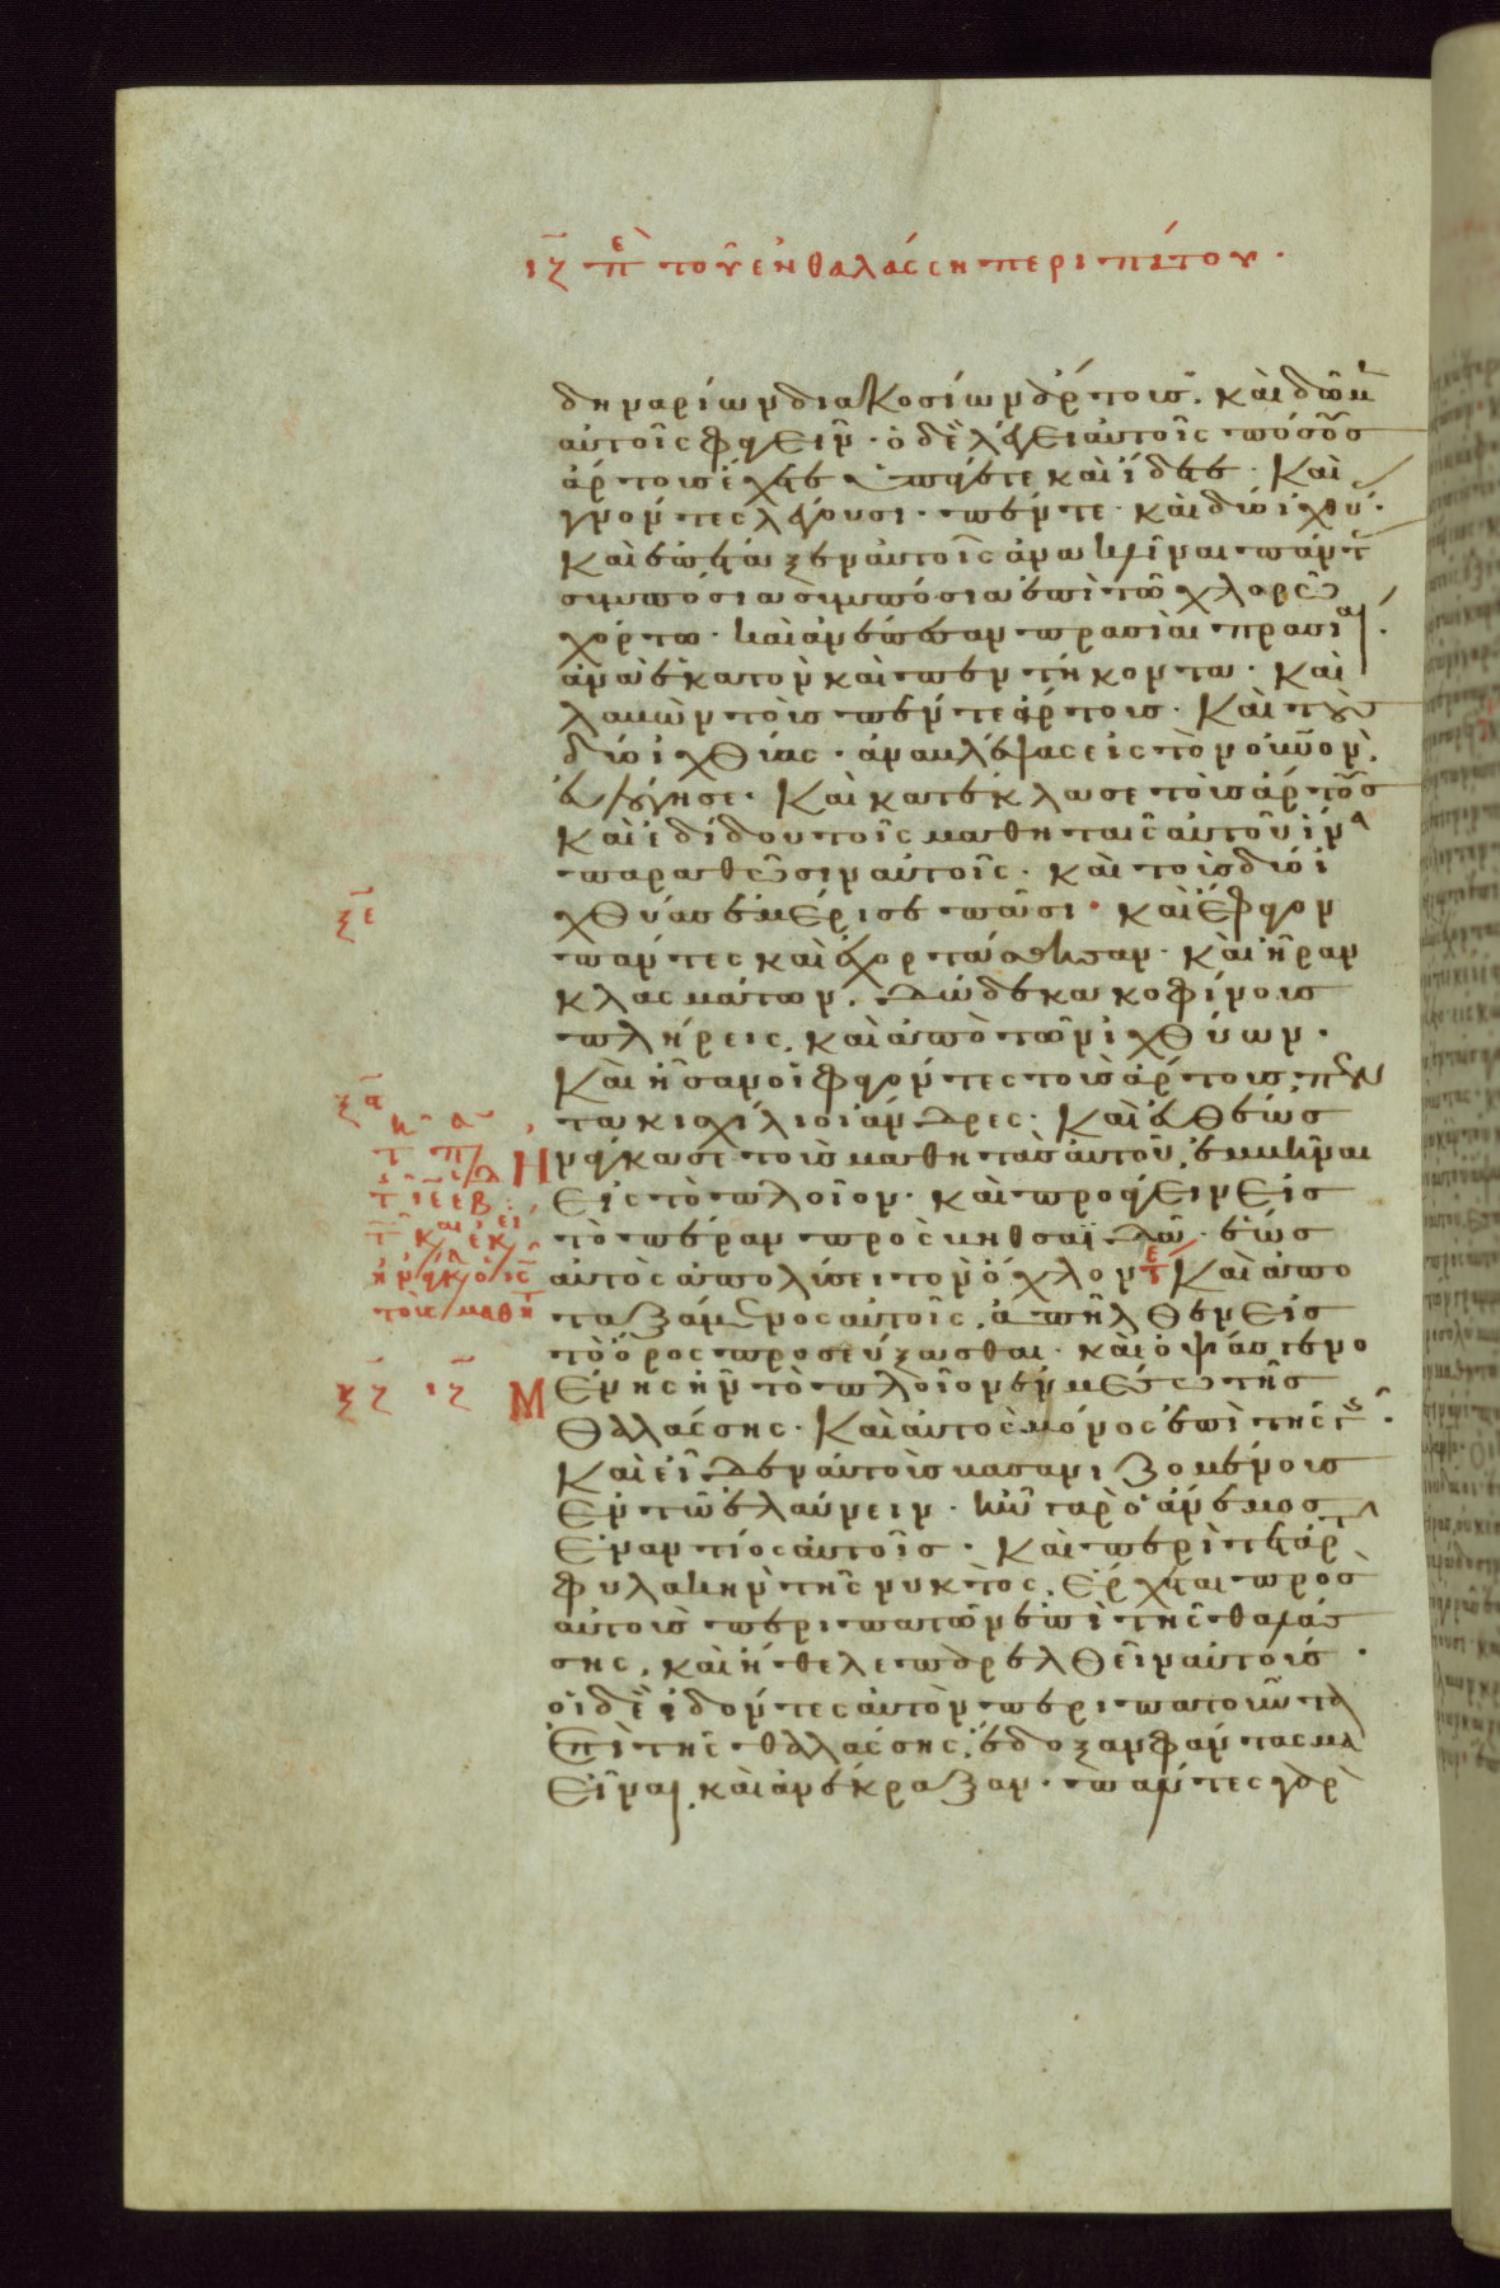 ιζ πε τοῦ ἐν θαλάσση περιπάτου.
δηναρίων διακοσίων ἄρτους. καὶ δῶμ
αὐτοῖς φαγεῖν. ὁ δὲ λέγει αὐτοῖς πόσους
ἄρτους ἔχετε ὑπάγετε καὶ ἴδετε. Καὶ
γνόντες λέγουσι. πέντε. καὶ δύο ἰχθύ.
Καὶ ἐπέταξεν αὐτοῖς ἀνακλῖναι πάντ
συμπόσια συμπόσια ἐπὶ τῶ χλορῶ
χόρτω. καὶ ἀνέπεσαν πρασιαὶ πρασιαὶ.
ἀνὰ ἑκατὸν καὶ πεντήκοντα. Καὶ
λαβὼν τοὺς πέντε ἄρτους. Καὶ τοὺς
δύο ἰχθύας. ἀναβλέψας εἰς τὸν οὐνον,
εὐλόγησε. Καὶ κατέκλασε τοὺς ἄρτους
Καὶ ἐδίδου τοῖς μαθηταῖς αὐτοῦ ἵνα
παραθῶσιν αὐτοῖς. καὶ τοὺς δύο ἰ
ξε χθύας ἐμέρισε πᾶσι. καὶ ἔφαγον
πάντες καὶ ἐχορτάσθησαν. καὶ ἦραν
κλασμάτων. δώδεκα κοφίνους
πλήρεις, καὶ ἀπὸ τῶν ἰχθύων.
Καὶ ἦσαν οἱ φαγόντες τοὺς ἄρτους, πεν
ξα τακισχίλιοι ἄνδρες. Καὶ εὐθέως
Ηνάγκασε τοὺς μαθητὰς αὐτοῦ, ἐμβῆναι
Εἰς τὸ πλοῖον. καὶ προάγειν Εἰς
τὸ πέραν πρὸς βηθσαϊδᾶν. ἕως
αὐτὸς ἀπολύσει τὸν ὄχλον τε Καὶ ἀπο
ταξάμενος αὐτοῖς, ἀπῆλθεν Εἰς
τὸ ὄρος προσεύξασθαι. καὶ ὀψίας γενο
ξζ ιζ ΜΕνης ἦν τὸ πλοῖον ἐν μέσω τῆς
Θαλάσσης. Καὶ αὐτὸς μόνος ἐπὶ τῆς γῆς.
Καὶ εἶδεν αὐτοὺς βασανιζομένους
Εν τῶ ἐλαύνειν. ἦν γὰρ ὁ ἄνεμος
Εναντίος αὐτοῖς. Καὶ περὶ τετάρτ
φυλακὴν τῆς νυκτὸς, Ερχεται πρὸς
αὐτοὺς περιπατῶν ἐπὶ τῆς θαλάσ
σης, καὶ ἤθελε παρελθεῖν αὐτούς.
οἱ δὲ ἰδόντες αὐτὸν περιπατοῦντα
Επὶ τῆς θαλάσσης, ἔδοξαν φάντασμα
Εἶναι, καὶ ἀνέκραξαν. πάντες γὰρ